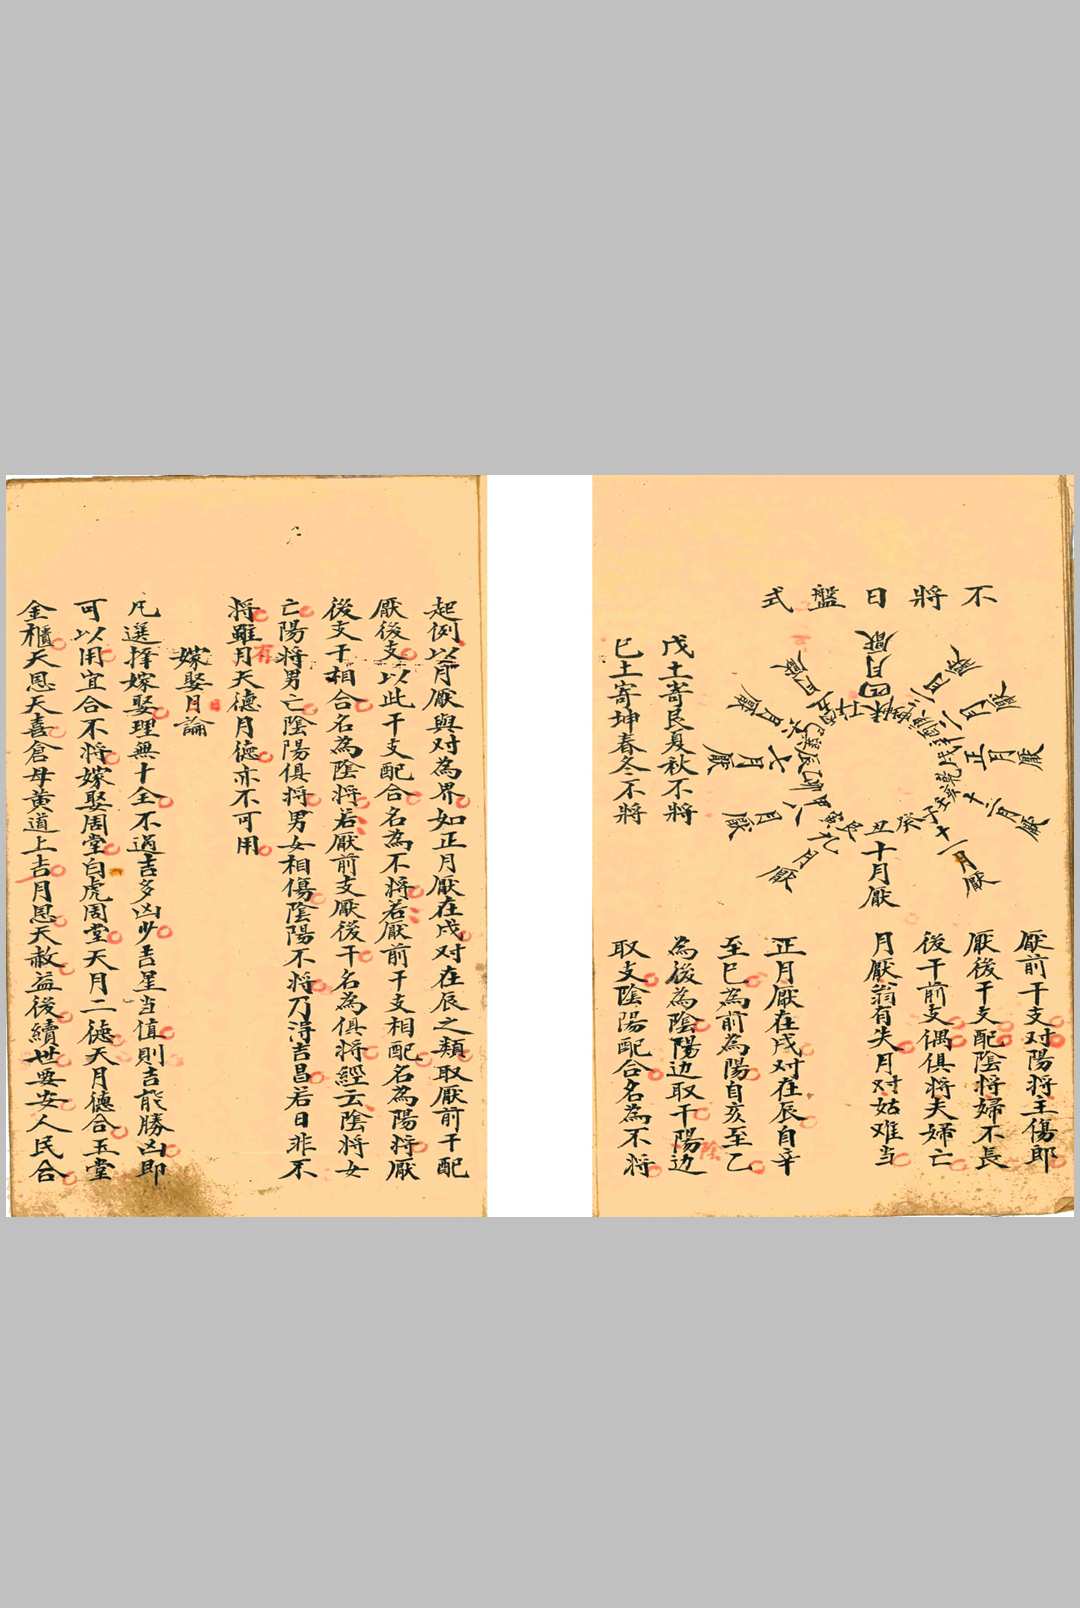 不將日盤式
正月厭
二月厭
三月厭
四月厭
五月厭
六月厭
七月厭
八月厭
九月厭
十月厭
十一月厭
十二月厭
戊土寄艮夏秋不将
巳土寄坤春冬不将
厭前干支对陽将主傷郎
厭後干支配陰将婦不長
後干前支偶俱将夫婦亡
月厭翁有失月对姑难当
正月厭在戌对在辰自辛
至巳為前為陽自亥至乙
為後為陰陽边取干陽边
陰
取支陰陽配合名為不将
起例以月厭與对為界如正月厭在戌对在辰之類取厭前干配
厭後支以此干支配合名為不将若厭前干支相配名為陽将厭
後支干相合名為陰将若厭前支厭後干名為俱将經云陰将女
亡陽将男亡陰陽俱将男女相傷陰陽不将乃淂吉昌若日非不
将雖有月天德月德亦不可用
嫁娶月論
凡選擇嫁娶理無十全不過吉多凶少吉星当值則吉能勝凶即
可以用宜合不将嫁娶周堂白虎周堂天月二德天月德合玉堂
金櫃天恩天喜倉母黄道上吉月恩天赦益後續世要安人民合